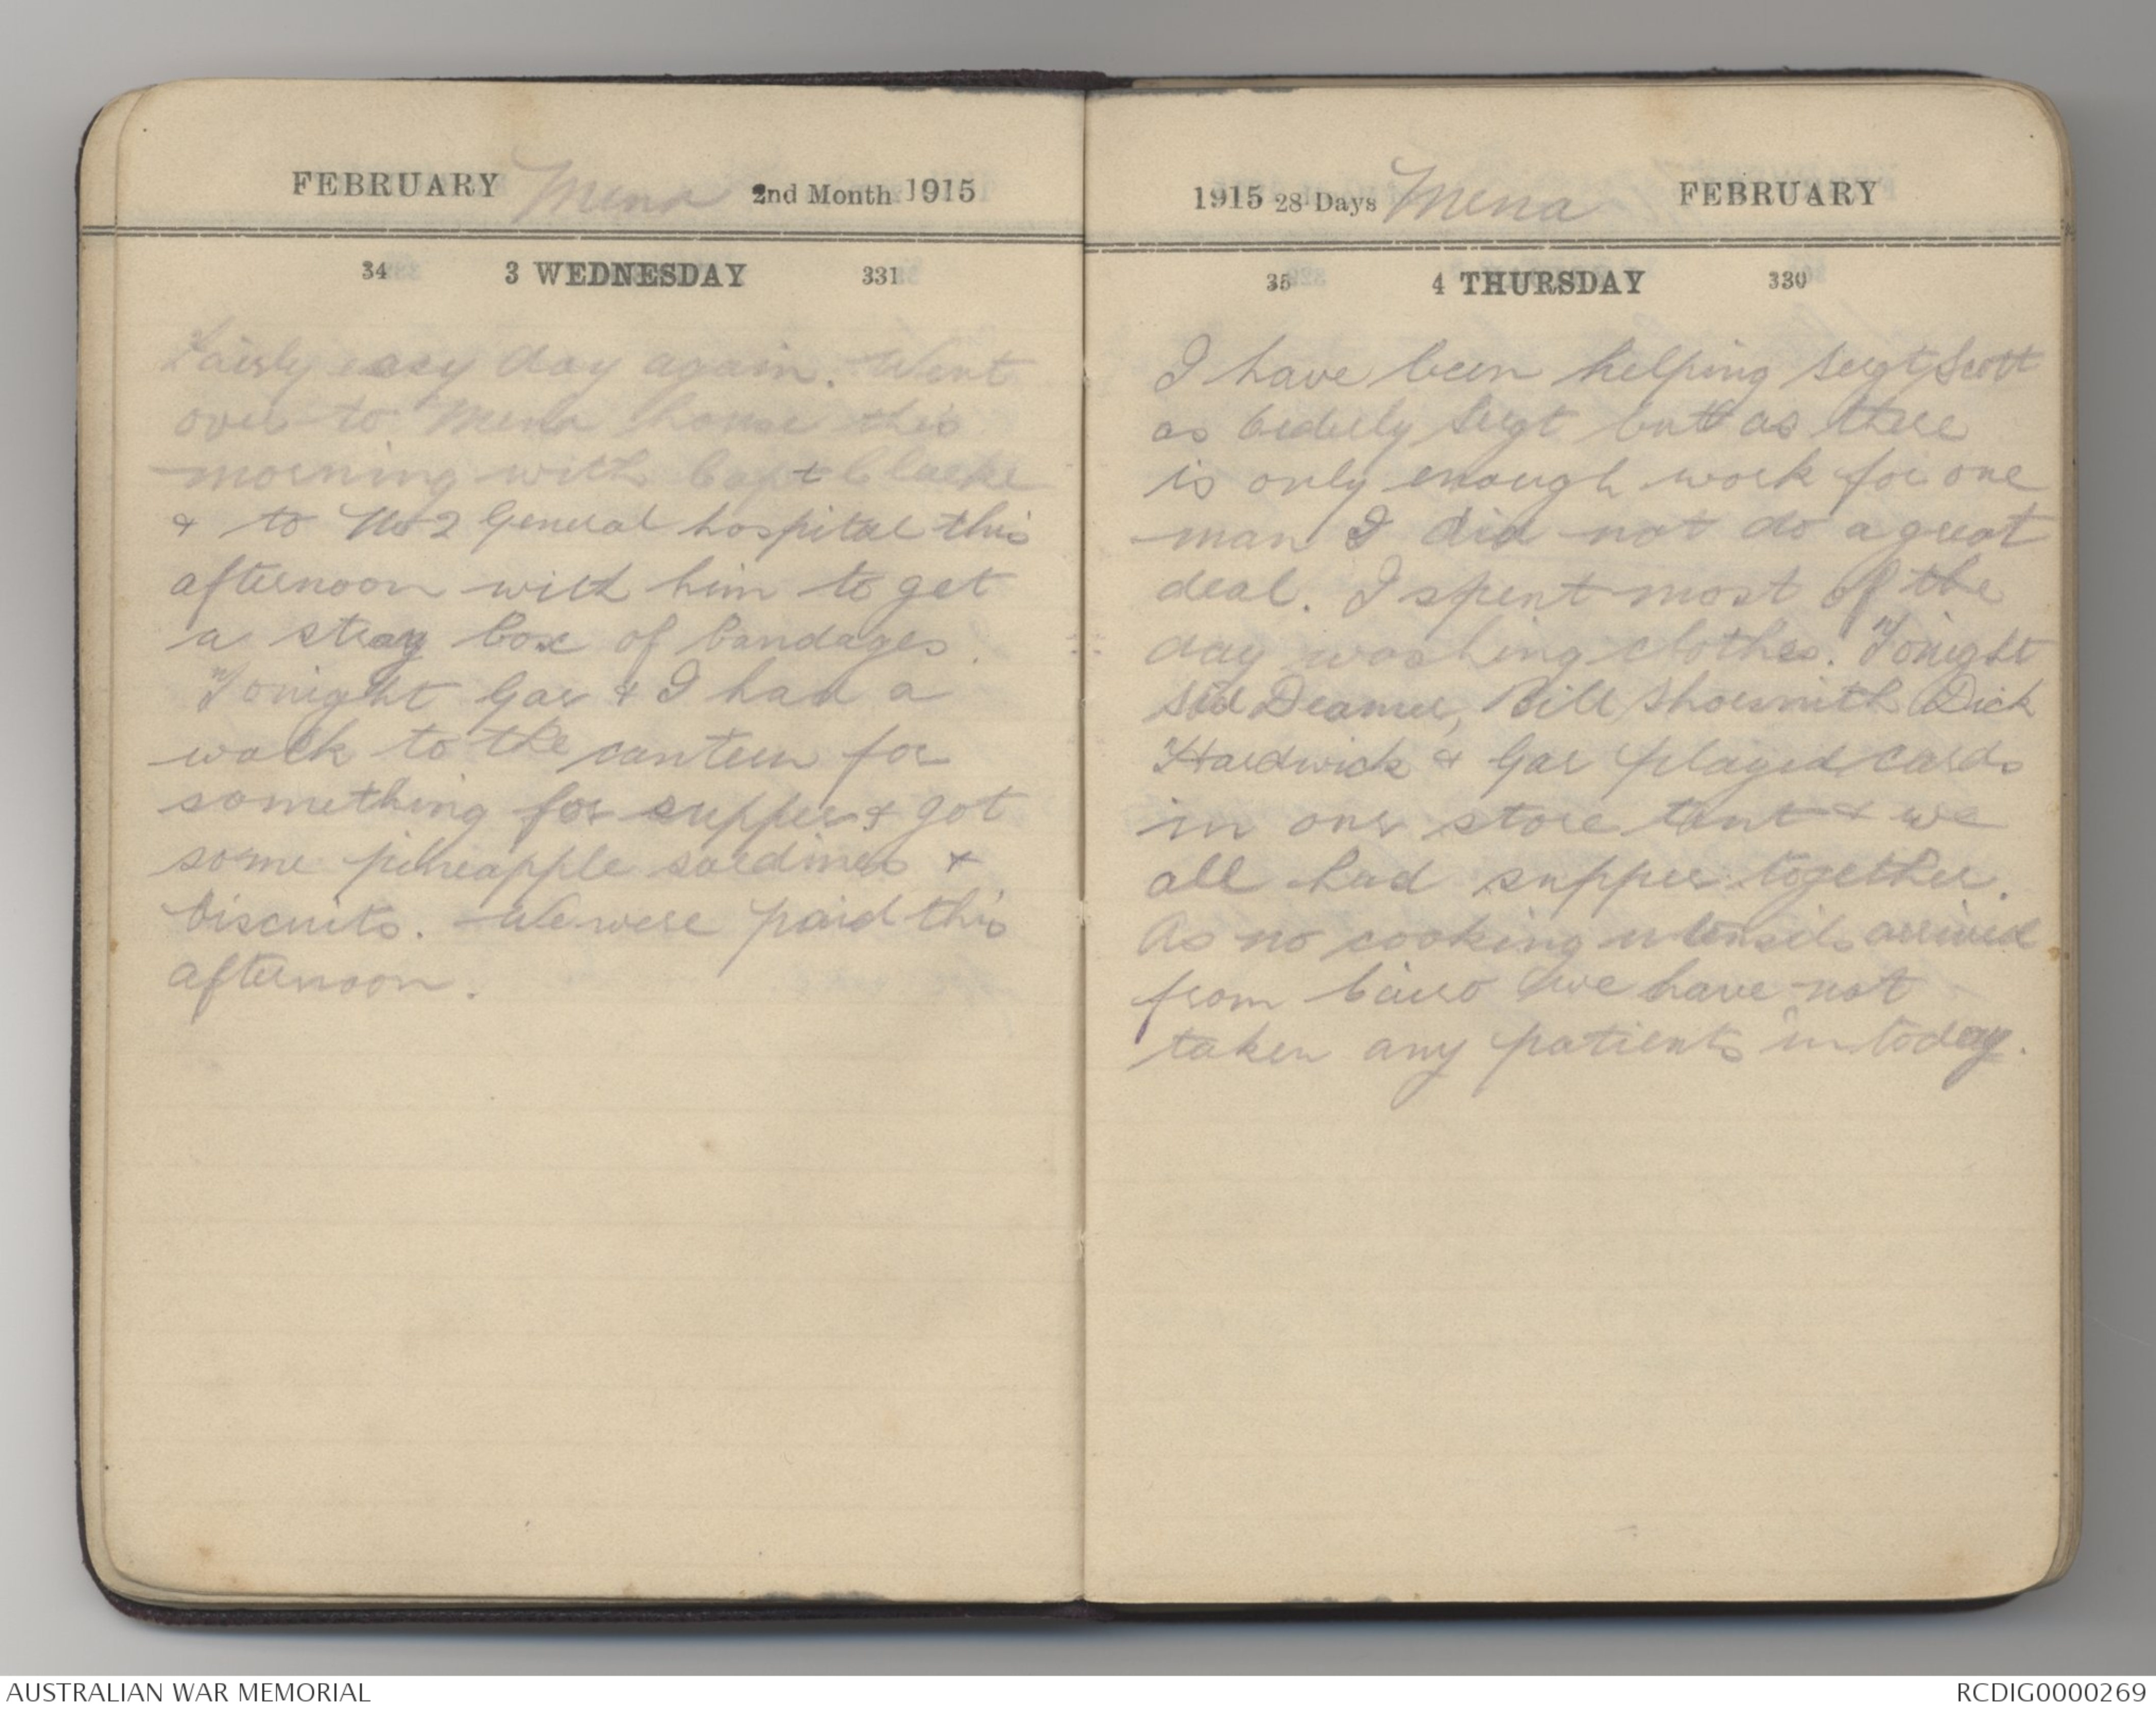 FEBRUARY Mena 2nd Month 1915
34 3 WEDNESDAY 331
Fairly easy day again. Went
over to Mena house this
morning with Capt Clarke
& to No 2 General hospital this
afternoon with him to get
a stray box of bandages.
Tonight Gar & I had a
walk to the canteen for
something for supper & got
some pineapple sardines &
biscuits. We were paid this
afternoon.
1915 28 Days Mena FEBRUARY
35 4 THURSDAY 330
I have been helping Sergt Scott
as Orderly Sergt but as there
is only enough work for one
man I did not do a great
deal. I spent most of the
day washing clothes. Tonight
Sid Deamer, Bill Shoesmith Dick
Hardwick & Gar played cards
in our store tent & we
all had supper together.
As no cooking utensils arrived
from Cairo we have not
taken any patients in today.
AUSTRALIAN WAR MEMORIAL
RCDIG0000269